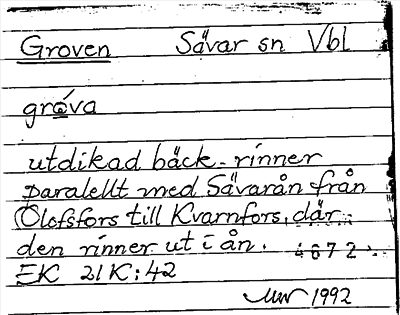 Groven Sävar sn Vbl
gróva
utdikad bäck - rinner
paralellt med Sävarån från
Olofsfors till Kvarnfors, där
den rinner ut i ån. 4672
EK 21K:42
1992